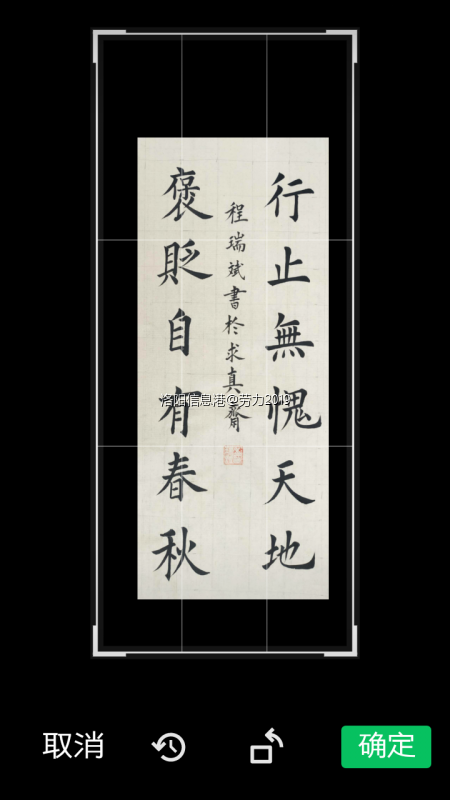 行止無愧天地
程瑞斌書於求真齋
褒貶自有春秋
洛阳信息港@劳力2019
取消
确定